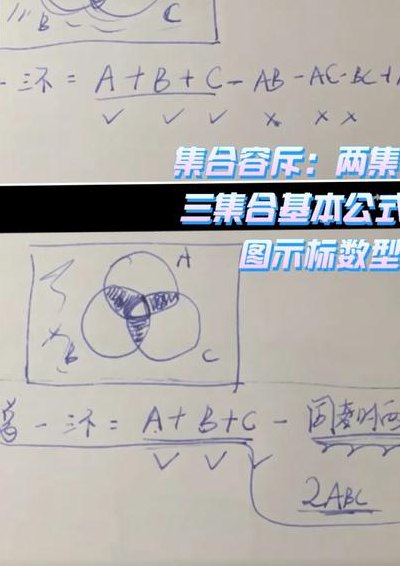 B C
一三不 = A + B + C - AB - AC - BC +
集合容斥：两集
三集合基本公式
图示标数型
A
B
C
- 三不 = A + B + C -
2ABC